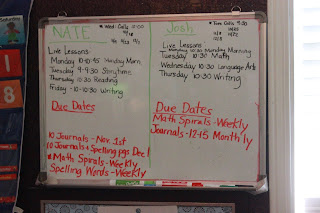 NATE
Live Lessons
Monday 10-10:45
Tuesday 9-9:30 Storytime
Thursday 10:30 Reading
Friday - 10-10:30 Writing
Due Dates
10 Journals - Nov. 1st
10 Journals + Spelling pgs Dec 1
Math Spirals - Weekly
Spelling Words - Weekly
Josh
Live Lessons
Monday 10:30 Monday Morning
Tuesday 10:30 Math
Wednesday 10:30 Language Arts
Thursday 10:30 Writing
Due Dates
Math Spirals - Weekly
Journals - 12-15 Monthly
18